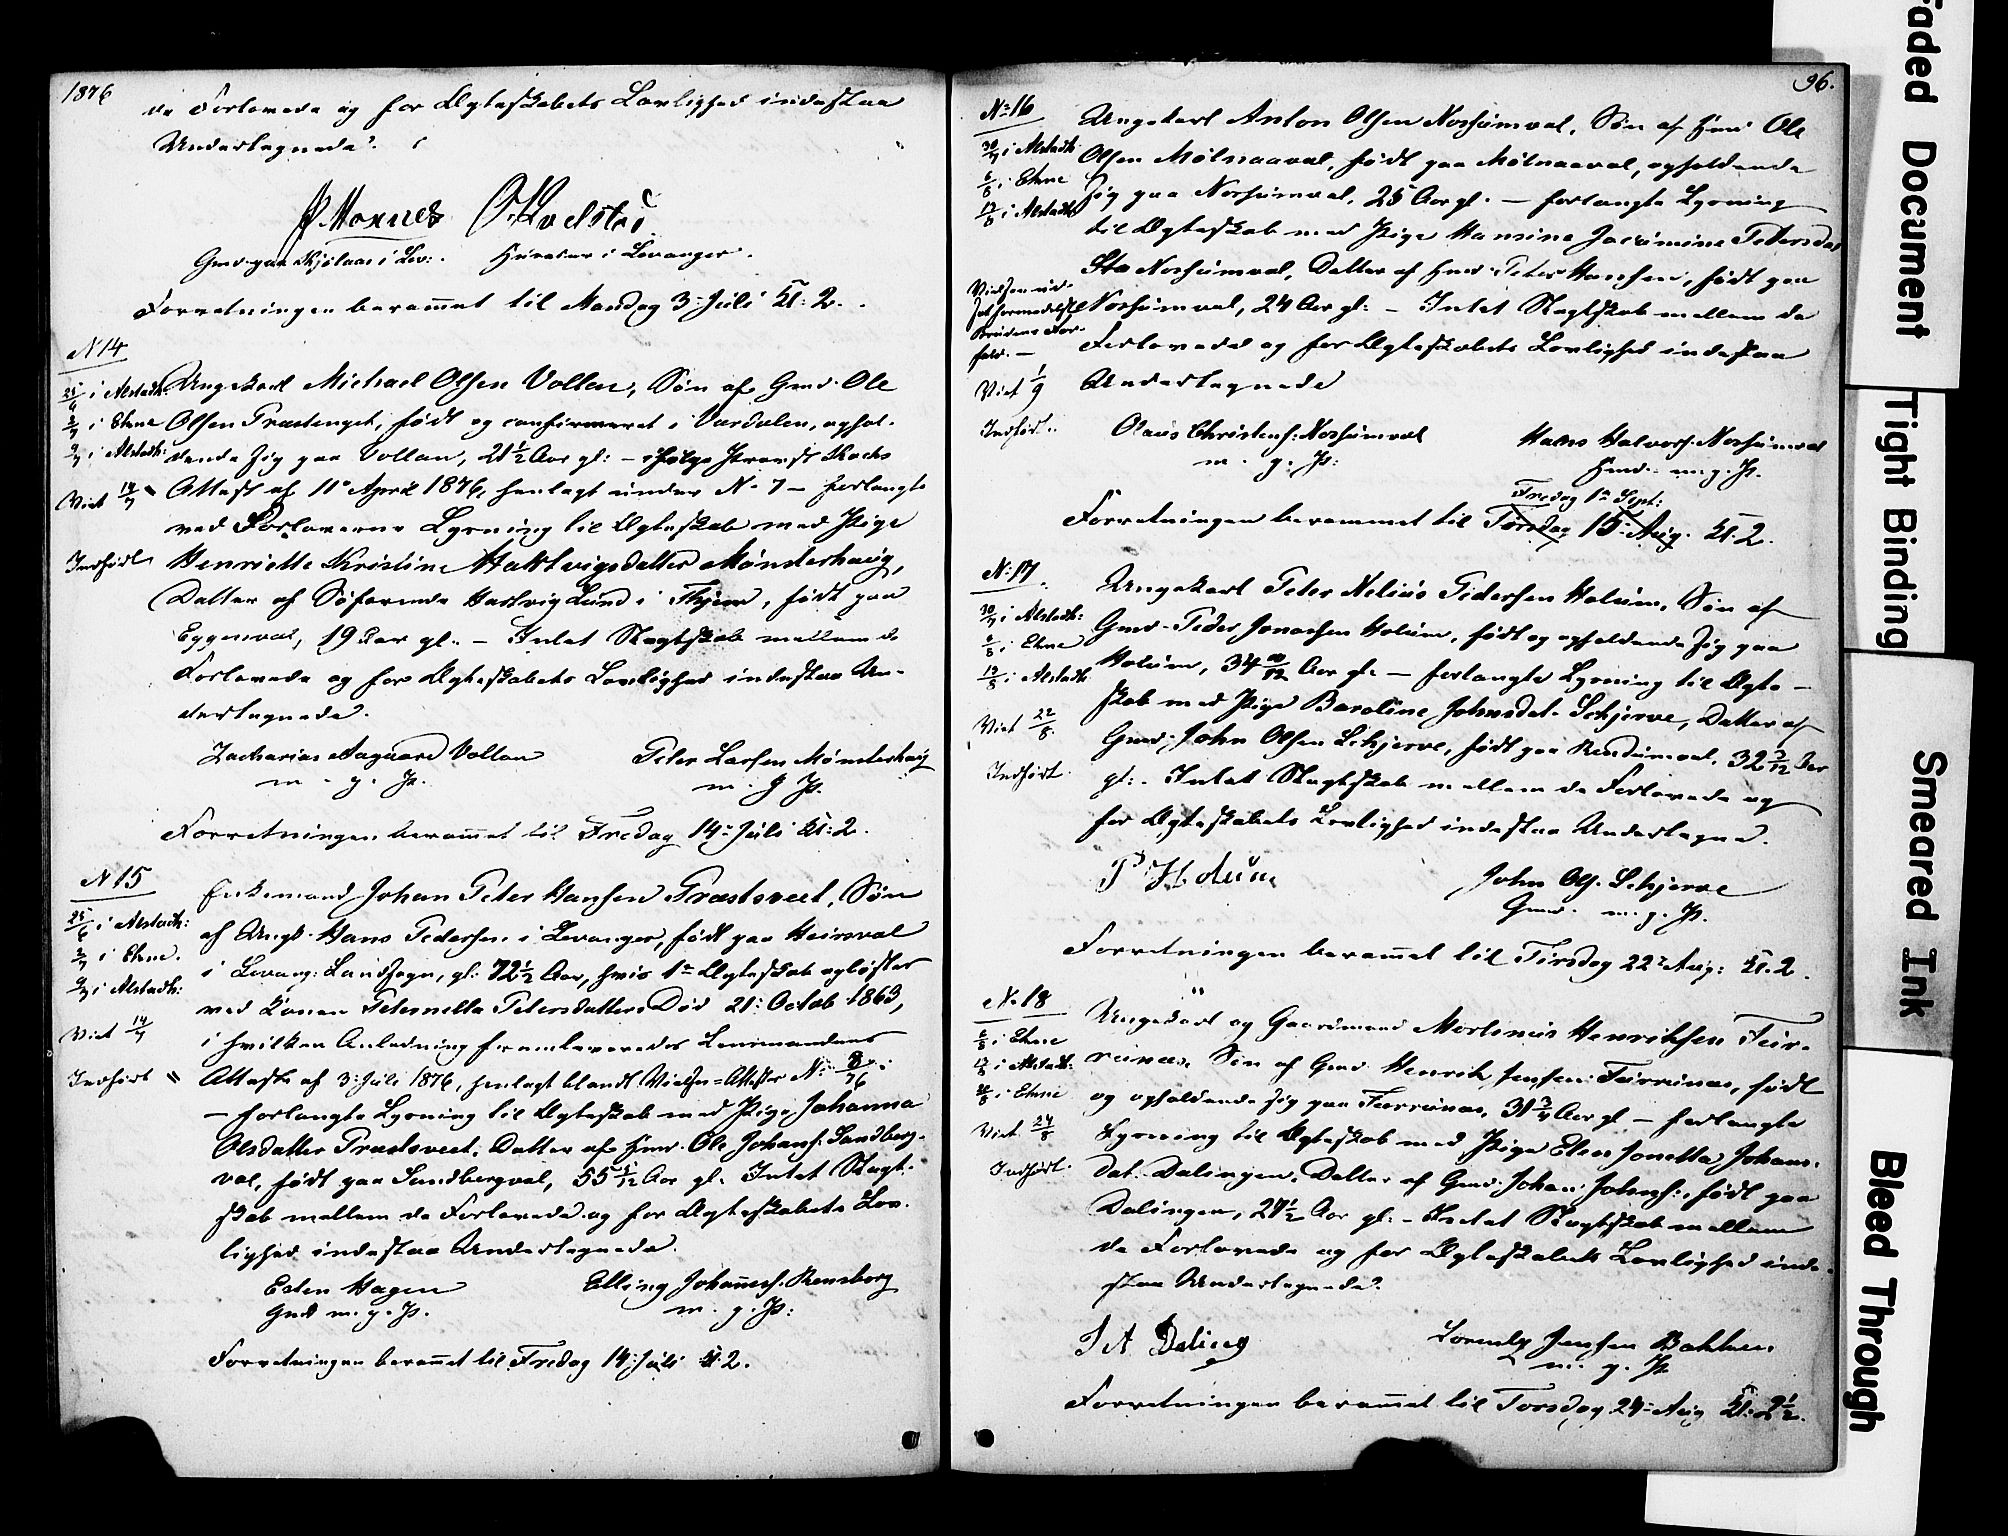 1876
de Forlovede og for Ægteskabets Lovlighed indestaa
Undertegnede.
P. Moxnes O. Kvelstad
Gmd. paa i Lev: i Levanger.
Forretningen berammet til Mandag 3: Juli Kl: 2.
N 14
25/6 i Alstadh:
2/7 i Ekne
9/7 i Alstadh:
Viet 14/7
Indført
Ungekarl Michael Olsen Vollan, Søn af Gmd. Ole
Olsen Præstenget, født og confirmeret i Værdalen, ophol-
dende sig paa Vollan, 21 1/2 Aar gl: – ifølge Provst
Attest af 11te April 1876, henlagt under No 7 – forlangte
ved Forloverne Lysning til Ægteskab med Pige
Henriette Kristine Hartvigsdatter Mønsterhaug,
Datter af Søfarende Hartvig Lund i , født paa
Eggenval, 19 Aar gl. – Intet Slægtskab mellem de
Forlovede og for Ægteskabets Lovlighed indestaa Un-
dertegnede.
Zacharias Aagaard Vollan Peter Larsen Mønsterhaug
m. p. P. m. p. P.
Forretningen berammet til Fredag 14: Juli Kl: 2.
N 15
25/6 i Alstadh:
2/7 i Ekne.
9/7 i Alstadh:
Viet 14/7
Indført
Enkemand Johan Peter Hansen Præstsveet, Søn
af Ungk. Hans Pedersen i Levanger, født paa Heirsval
i Levang: Landsogn, gl: 72 1/2 Aar, hvis 1te Ægteskab opløstes
ved Konen Peternella Petersdatters Død 21: Octob 1863,
i hvilken Anledning fremleveredes Lensmandens
Attest af 3: Juli 1876, henlagt blandt Vielses-Attester N: 8/76.
– forlangte Lysning til Ægteskab med Pige Johanna
Olsdatter Præstsveet, Datter af Hmd. Ole Johans: Sandberg-
val, født paa Sandbergval, 55 1/12 Aar gl. Intet Slægt-
skab mellem de Forlovede og for Ægteskabets Lov-
lighed indestaa Undertegnede.
Esten Hagen Elling Johannes: Rensberg
Gmd m. p. P. m. p. P:
Forretningen berammet til Fredag 14: Juli Kl 2.
96.
No 16
30/7 i Alstadh:
6/8 i Ekne
13/8 i Alstadh
Vielsen ud-
sat formedelst
Brudens For-
fald. –
Viet 1/9
Indført.
Ungekarl Anton Olsen Norsumval, Søn af Hmd Ole
Olsen Mølnaaval, født paa Mølnaaval, opholdende
sig paa Norsumval, 25 Aar gl. – forlangte Lysning
til Ægteskab med Pige Hansine Jacomine Petersdat-
ter Norsumval, Datter af Hmd. Peter Hansen, født paa
Norsumval, 24 Aar gl: – Intet Slægtskab mellem de
Forlovede og for Ægteskabets Lovlighed indestaa
Undertegnede
Olaus Christens: Norsumval Hans Halvors: Norsumval
m. p. P: Hmd. m. p. P.
Fredag 1te Sept:
Forretningen berammet til Torsdag 15: Aug. Kl. 2.
N: 17
30/7 i Alstadh:
6/8 i Ekne
13/8 i Alstadh
Viet 22/8.
Indført.
Ungekarl Peter Nelius Pedersen Holum, Søn af
Gmd. Peder Jonassen Holum, født og opholdende sig paa
Holum, 34 10/12 Aar gl. – forlangte Lysning til Ægte-
skab med Pige Baroline Johnsdat. Schjerve, Datter af
Gmd. John Olsen Schjerve, født paa Rendumval, 32 3/12 Aar
gl:. Intet Slægtskab mellem de Forlovede og
for Ægteskabets Lovlighed indestaa Undertegned.
P Holum John Ols. Schjerve
Gmd. m. p. P.
Forretningen berammet til Tirsdag 22: Aug: Kl. 2.
No 18
6/8 i Ekne
13/8 i Alstadh:
20/8 i Ekne
Viet 24/8
Indført.
Ungekarl og Gaardmand Mortinus Henriksen Feir-
runas, Søn af Gmd. Henrik Jensen Feirrunas, født
og opholdende sig paa Feirrunas, 31 3/4 Aar gl – forlangte
Lysning til Ægteskab med Pige Elen Jonetta Johans-
dat. Dalingen, Datter af Gmd. Johan Johns:, født paa
Dalingen, 27 1/2 Aar gl. – Intet Slægtskab mellem
de Forlovede og for Ægteskabets Lovlighed inde-
staa Undertegnede.
J A Daling Lorents Jensen Bakken
m. p. P.
Forretningen berammet til Torsdag 24: Aug Kl: 2 1/2.
Faded Document
Tight Binding
Smeared Ink
Bleed Through